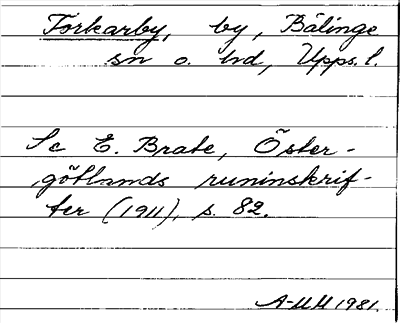 Forkarby, by, Bälinge
sn o. hd, Upps. l.
Se E. Brate, Öster-
götlands runinskrif-
ter (1911), s. 82.
A-MM 1981.